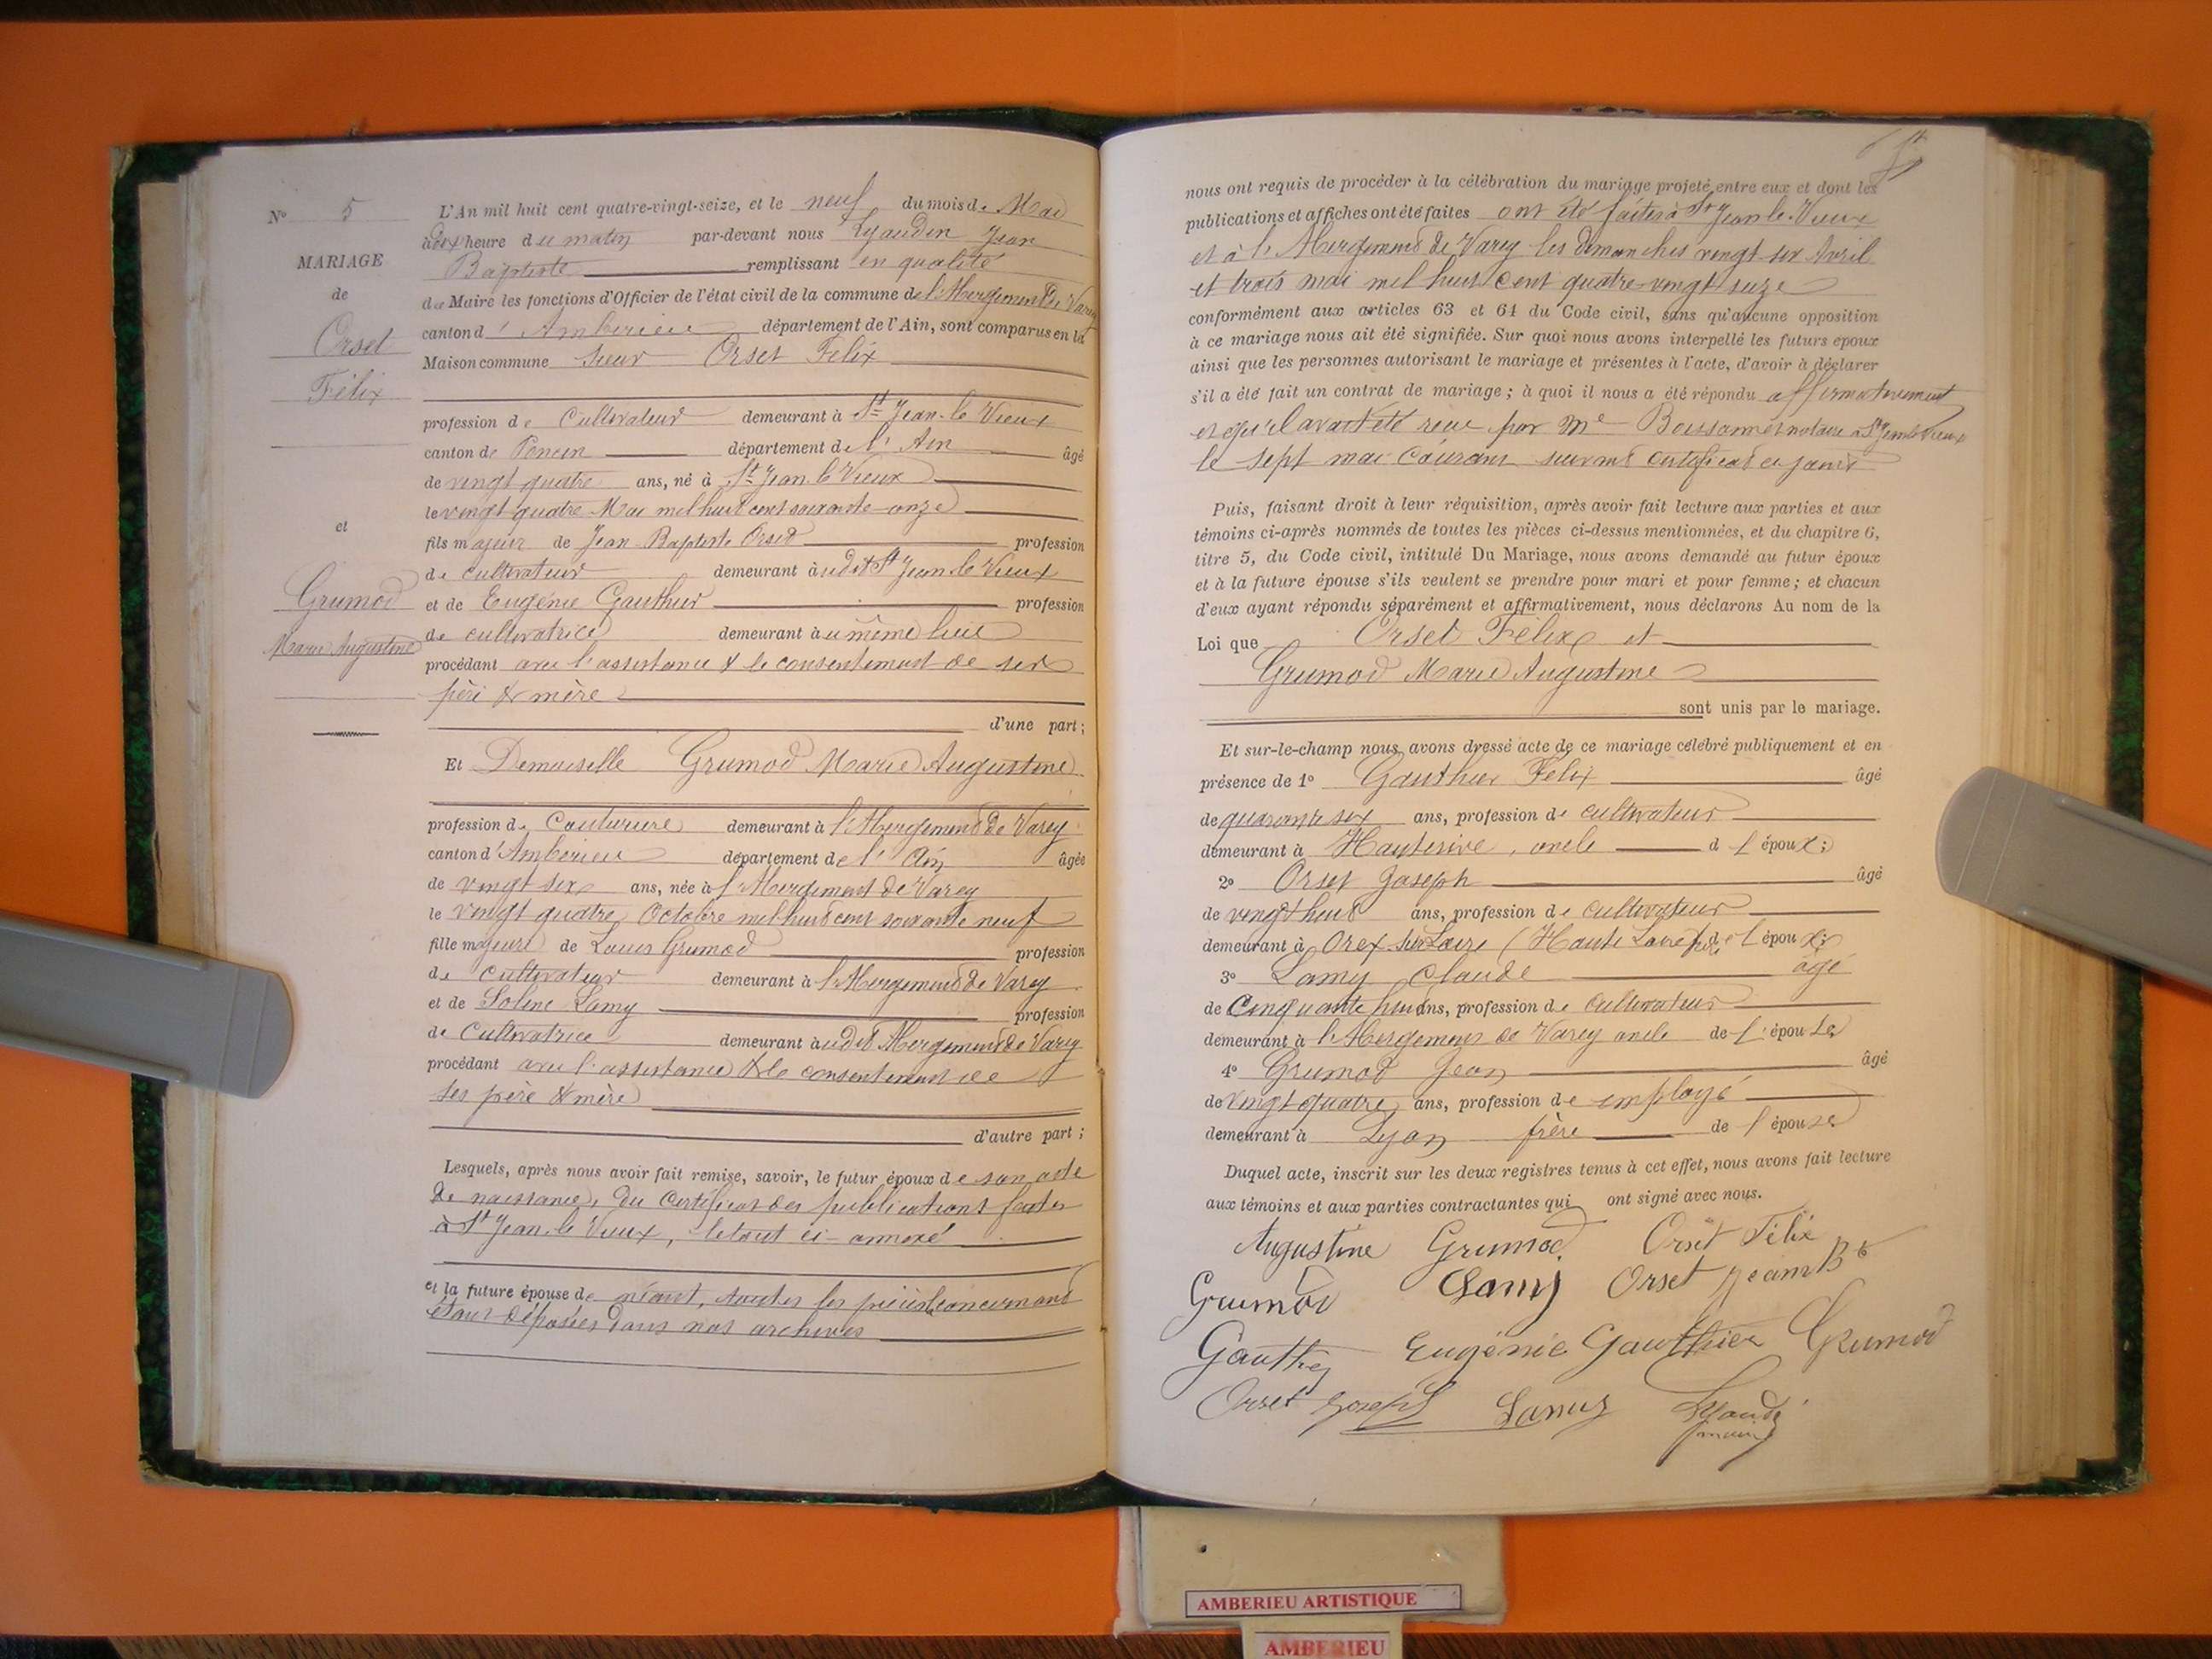 N° 5
MARIAGE
de
Orset
Félix
et
Grumod
Marie Augustine
L'An mil huit cent quatre-vingt-seize, et le neuf du mois de Mai
à dix heure du matin par-devant nous Lyaudin Jean
Baptiste remplissant en qualité
de Maire les fonctions d'Officier de l'état civil de la commune de l'Abergement de Varey
canton d'Amberieu département de l'Ain, sont comparus en la
Maison commune sieur Orset Félix
profession de Cultivateur demeurant à St Jean-le Vieux
canton de Poncin département de l'Ain âgé
de vingt quatre ans, né à St Jean le Vieux
le vingt quatre Mai mil huit cent soixante-onze
fils majeur de Jean-Baptiste Orset profession
de cultivateur demeurant audit St Jean-le Vieux
et de Eugénie Gauthier profession
de cultivatrice demeurant au même lieu
procédant avec l'assistance & le consentement de ses
père & mère
d'une part;
Et Demoiselle Grumod Marie Augustine
profession de Couturière demeurant à l'Abergement de Varey
canton d'Amberieu département de l'Ain âgée
de vingt six ans, née à l'Abergement de Varey
le vingt quatre Octobre mil huit cent soixante neuf
fille majeure de Louis Grumod profession
de cultivateur demeurant à l'Abergement de Varey
et de Soline Lamy profession
de Cultivatrice demeurant audit Abergement de Varey
procédant avec l'assistance & le consentement de
ses père & mère
d'autre part;
Lesquels, après nous avoir fait remise, savoir, le futur époux de son acte
de naissance, du certificat des publications faites
à St Jean-le Vieux, le tout ci-annexé
et la future épouse de néant, toutes les pièces la concernant
étant déposées dans nos archives
nous ont requis de procéder à la célébration du mariage projeté entre eux et dont les
publications et affiches ont été faites ont été faites à St Jean le-Vieux
et à l'Abergement de Varey les dimanches vingt-six Avril
et trois mai mil huit cent quatre-vingt seize
conformément aux articles 63 et 64 du Code civil, sans qu'aucune opposition
à ce mariage nous ait été signifiée. Sur quoi nous avons interpellé les futurs époux
ainsi que les personnes autorisant le mariage et présentes à l'acte, d'avoir à déclarer
s'il a été fait un contrat de mariage; à quoi il nous a été répondu affirmativement
et qu'il avait été reçu par Me notaire à St Jean le Vieux
le sept mai courant suivant certificat ci joint
Puis, faisant droit à leur réquisition, après avoir fait lecture aux parties et aux
témoins ci-après nommés de toutes les pièces ci-dessus mentionnées, et du chapitre 6,
titre 5, du Code civil, intitulé Du Mariage, nous avons demandé au futur époux
et à la future épouse s'ils veulent se prendre pour mari et pour femme; et chacun
d'eux ayant répondu séparément et affirmativement, nous déclarons Au nom de la
Loi que Orset Félix et
Grumod Marie Augustine
sont unis par le mariage.
Et sur-le-champ nous avons dressé acte de ce mariage célébré publiquement et en
présence de 1° Gauthier Félix âgé
de quarante six ans, profession de cultivateur
demeurant à Hauterive, oncle d l'époux;
2° Orset Joseph âgé
de vingt huit ans, profession de cultivateur
demeurant à sur Loire (Haute Loire) de l'époux;
3° Lamy Claude âgé
de Cinquante huit ans, profession de cultivateur
demeurant à l'Abergement de Varey oncle de l'épouse
4° Grumod Jean âgé
de vingt quatre ans, profession de employé
demeurant à Lyon frère de l'épouse
Duquel acte, inscrit sur les deux registres tenus à cet effet, nous avons fait lecture
aux témoins et aux parties contractantes qui ont signé avec nous.
Augustine Grumod Orset Félix
Grumod Lamy Orset Jean Bte
Gauthier Eugénie Gauthier Grumod
Orset Joseph Lamy Lyaudin
maire
AMBERIEU ARTISTIQUE
AMBERIEU